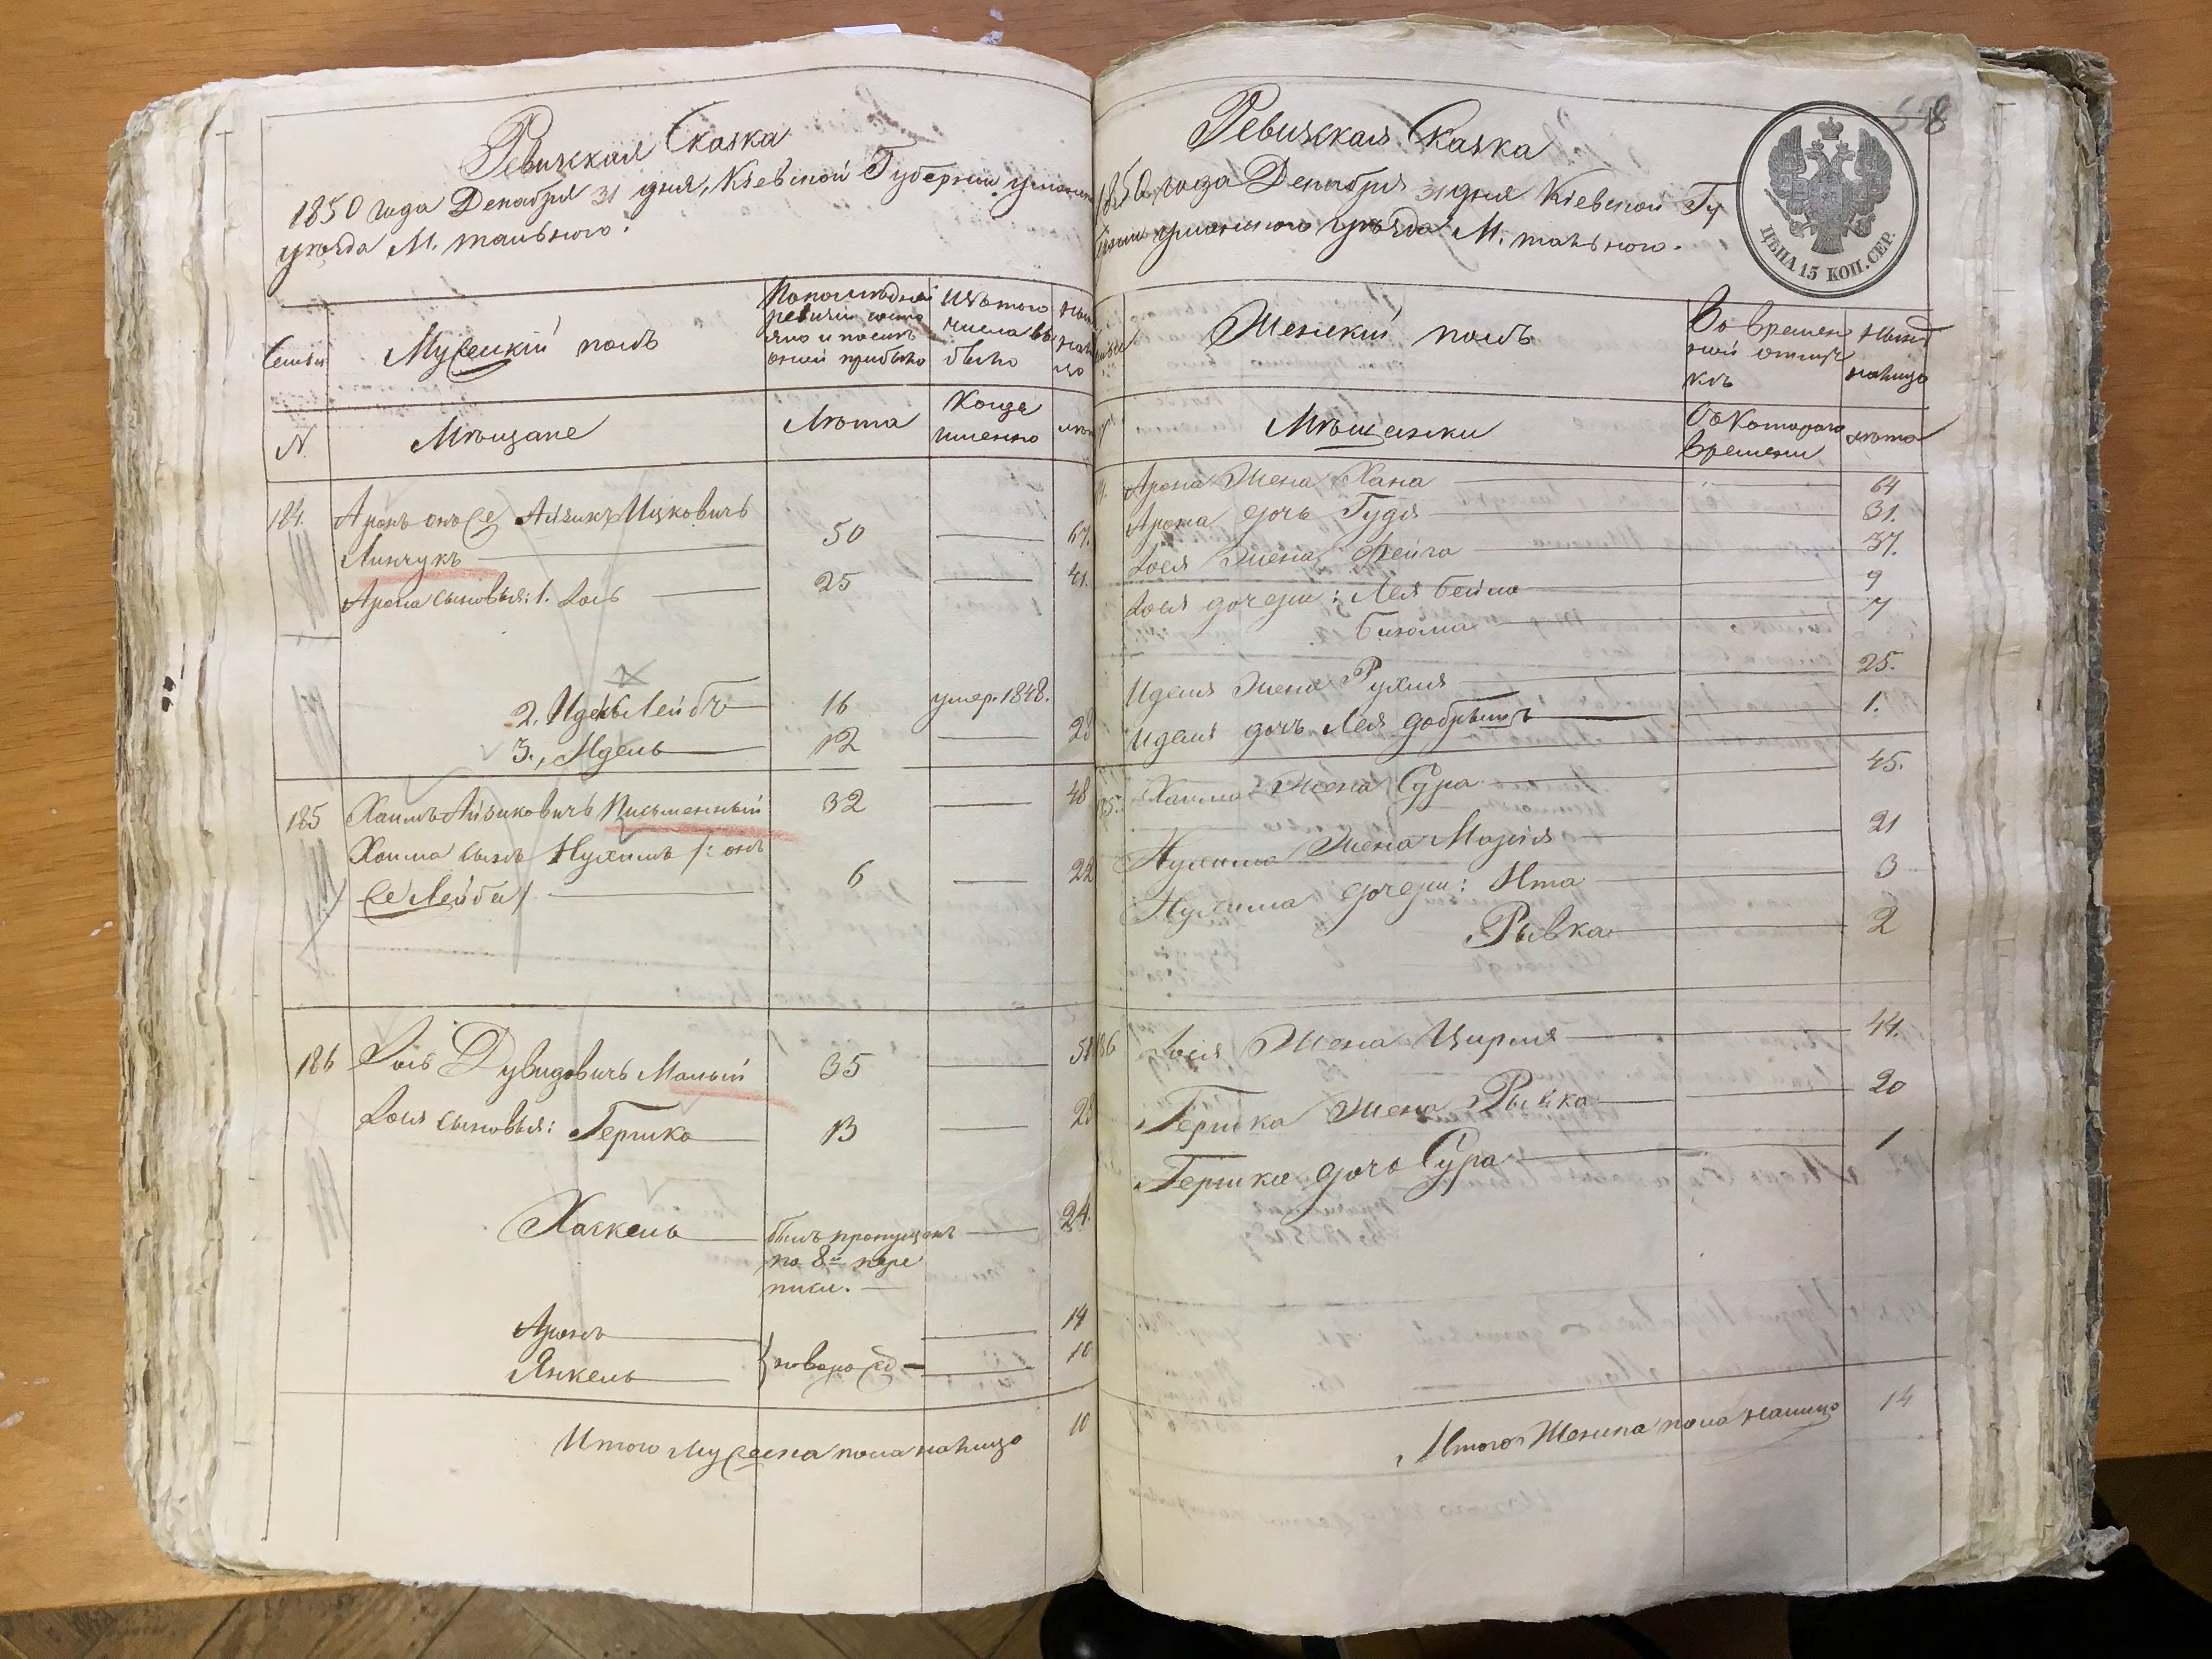 Ревизская Сказка
1850 года Декабря 31 дня, Кіевской Губерніи уманска
уѣзда М. тального.
Семьи
Мужескій полъ
По последней
ревизіи состо
яло и после
оной прибыло
Изъ того
числа вы
было
Ныне
на ли
цо
N.
Мѣщане
Лѣта
Когда
именно
лѣта
184.
Аронъ онже Айзикъ Ицковичъ
50
67.
Линчукъ
Арона сыновья: 1. Іось
25
41.
2. Идель Лейбъ
16
умер. 1848.
3., Идель
12
28
185
Хаимъ Айзиковичъ Письменный
32
48
Хаима сынъ Нухимъ /: онъ
же Лейба /
6
22
186
Іось Дувидовичъ Малый
35
51
Іося сыновья: Гершко
13
28
Хаскель
былъ пропущенъ
по 8й пере
писи.
24.
Аронъ
14
Янкель
новорожд
10
Итого мужеска пола на лицо
10
Ревизская Сказка
1850 года Декабря 31 дня Кіевской Гу
берніи уманского уѣзда М. тального.
ЦѢНА 15 КОП. СЕР.
Женскій полъ
Во времен
ной отлуч
кѣ
Ныне
на лицо
Мѣщанки
Съ Котораго
времени
лѣта
Арона Жена Хана
64
Арона дочь Гудя
31.
Іося Жена Фейга
37.
Іося дочери: Лея бейла
9
7
Иделя Жена Рухля
25.
Иделя дочъ Лея добрышъ
1.
Хаима Жена Сура
45.
Нухима Жена Марія
21
Нухима дочери: Ита
3
Рывка
2
186
Іося Жена Цирля
44.
Гершка Жена Рывка
20
Гершка дочь Сура
1
Итого Женска пола налицо
14